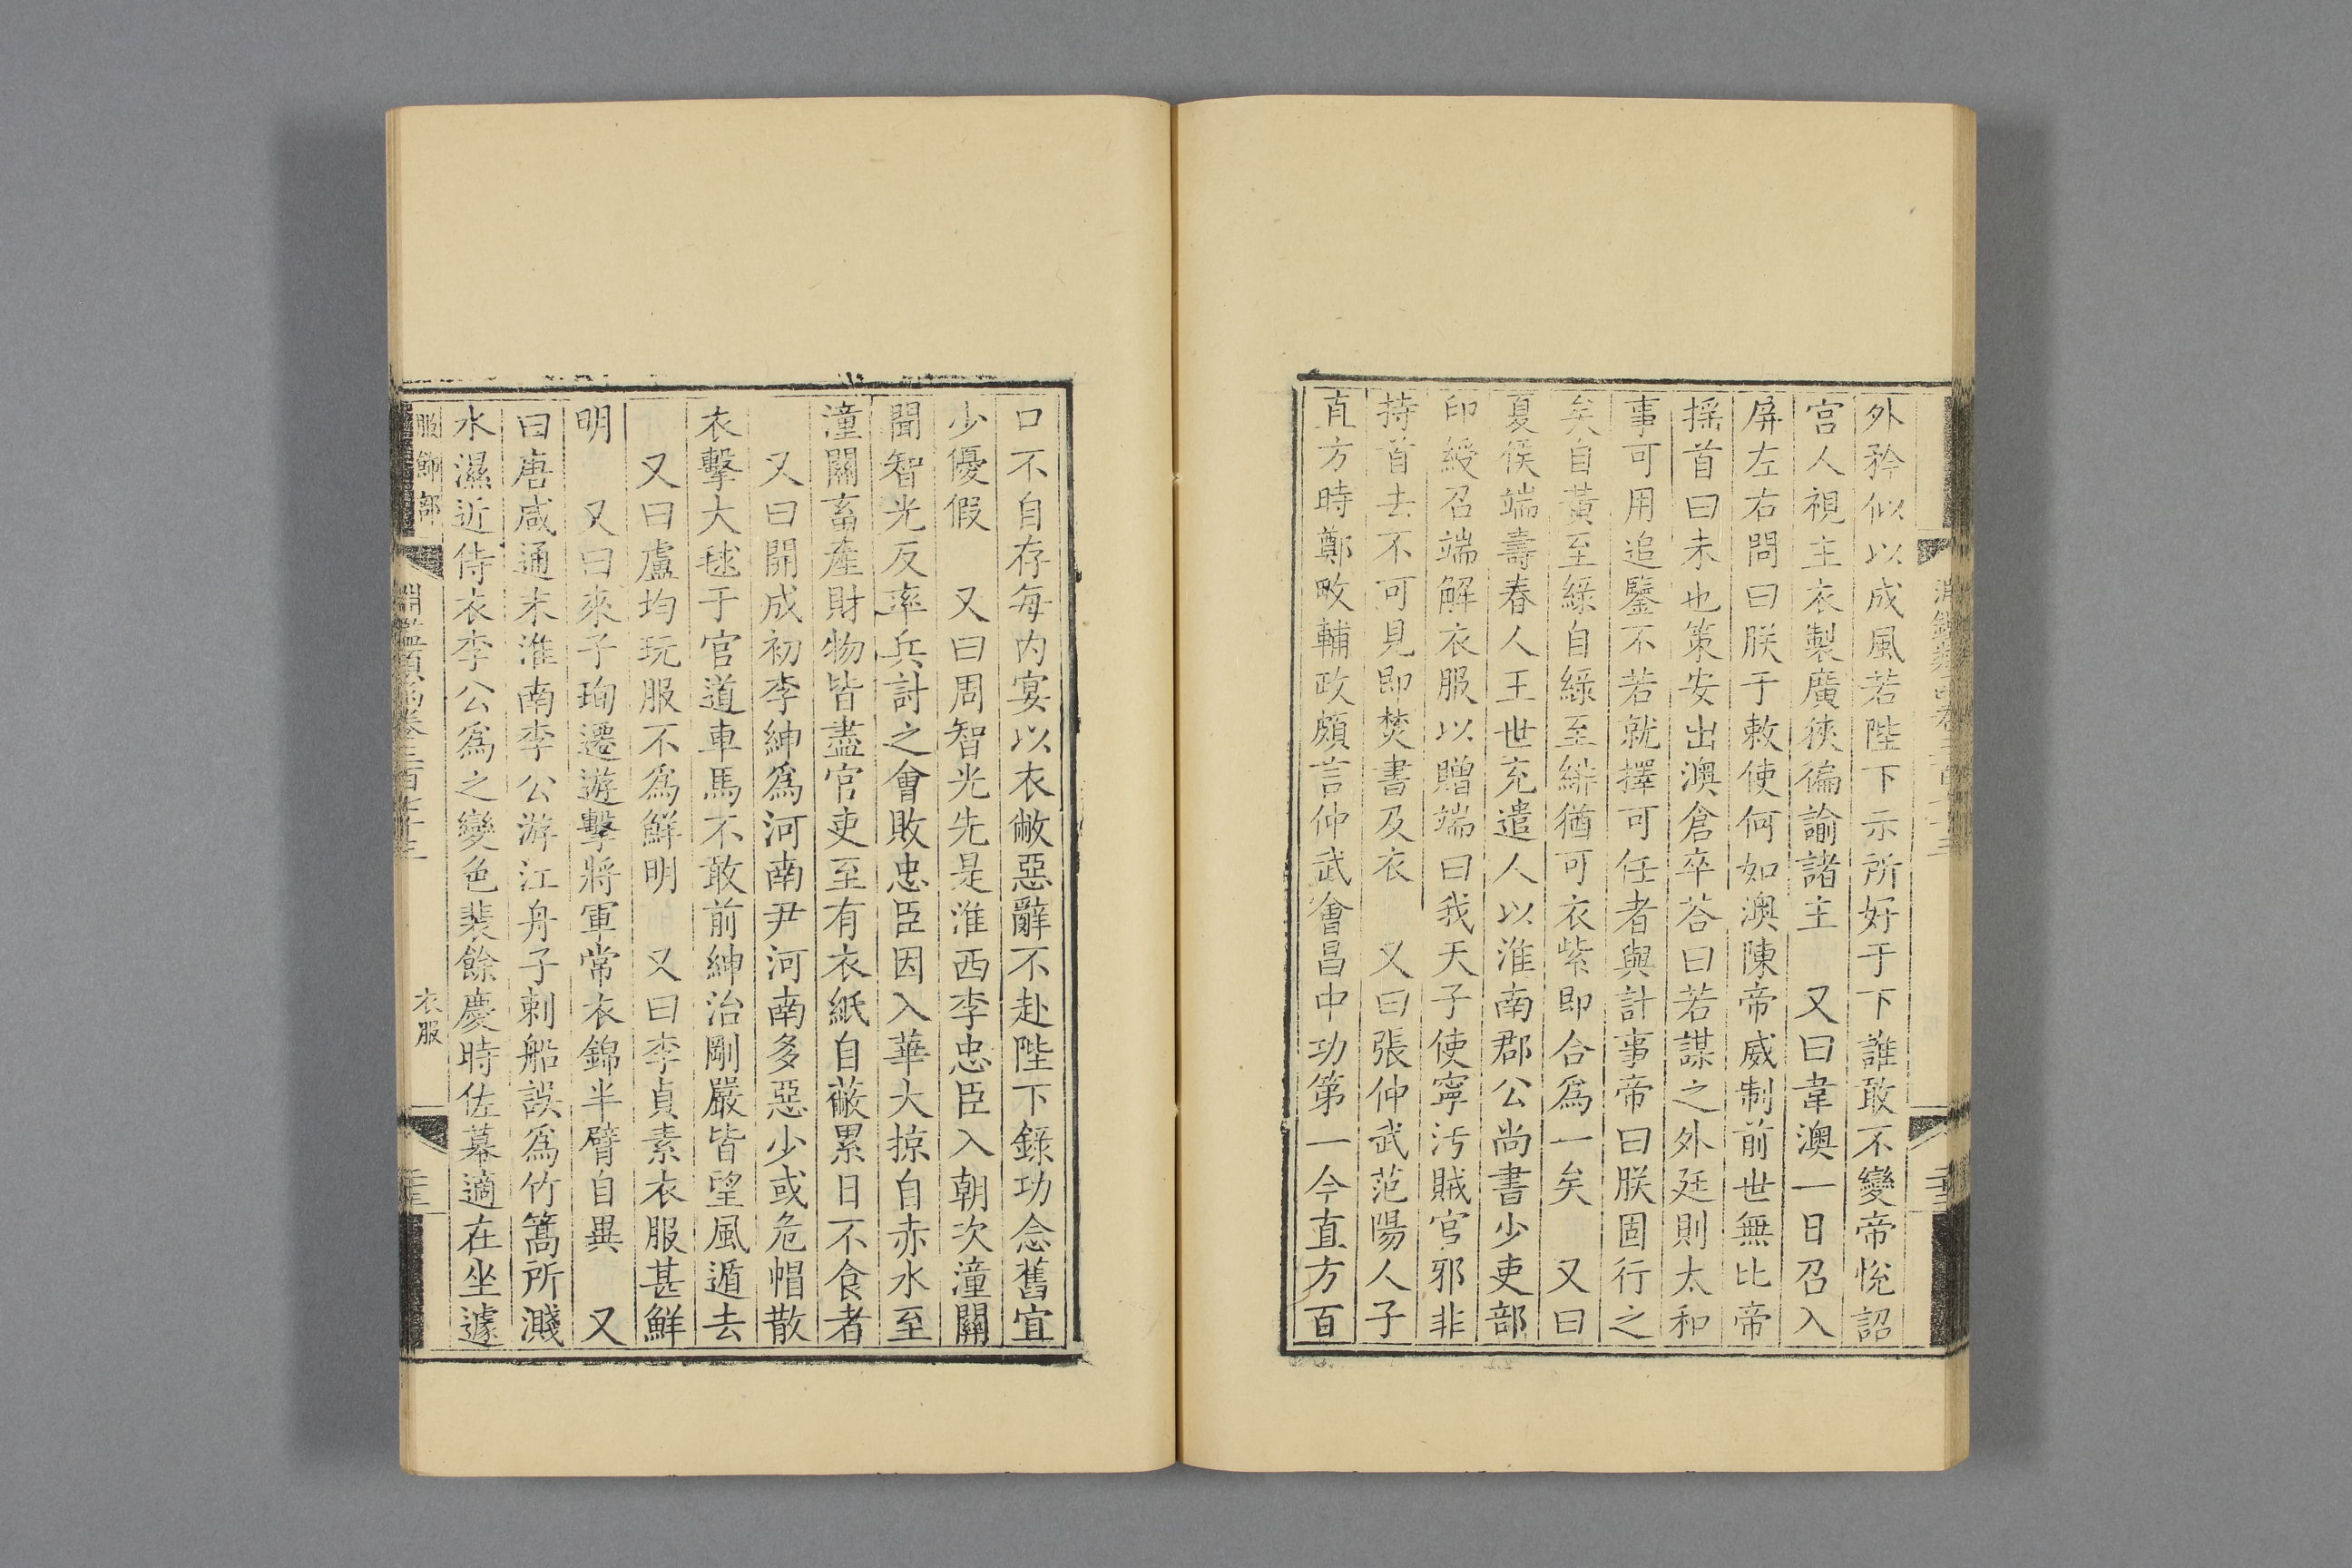 外矜似以成風若陛下示所好于下誰敢不變帝悅詔
宮人視主衣製廣狹徧諭諸主　又曰韋澳一日召入
屏左右問曰朕于敕使何如澳陳帝威制前世無比帝
搖首曰未也策安出澳倉卒荅曰若謀之外廷則太和
事可用追鑒不若就擇可任者與計事帝曰朕固行之
矣自黃至綠自綠至緋猶可衣紫即合爲一矣　又曰
夏侯端壽春人王世充遣人以淮南郡公尚書少吏部
印綬召端解衣服以贈端曰我天子使寧汚賊官邪非
持首去不可見即焚書及衣　又曰張仲武范陽人子
直方時鄭畋輔政頗言仲武會昌中功第一今直方百
口不自存每内宴以衣敝惡辭不赴陛下錄功念舊宜
少優假　又曰周智光先是淮西李忠臣入朝次潼關
聞智光反率兵討之會敗忠臣因入華大掠自赤水至
潼關畜產財物皆盡官吏至有衣紙自蔽累日不食者
又曰開成初李紳爲河南尹河南多惡少或危帽散
衣擊大毬于官道車馬不敢前紳治剛嚴皆望風遁去
又曰盧均玩服不爲鮮明　又曰李貞素衣服甚鮮
明　又曰來子珣遷遊擊將軍常衣錦半臂自異　又
曰唐咸通末淮南李公游江舟子刺船誤爲竹篙所濺
水濕近侍衣李公爲之變色裴餘慶時佐幕適在坐遽
服飾部
淵鑑類函卷三百七十三
衣服